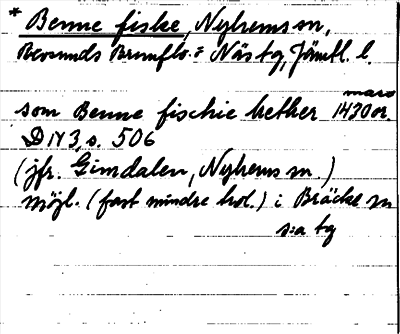 * Benne fiske, Nyhems sn,
Revsunds Brunflo- o Näs tg, Jämtl. l.
mars
som Benne fischie hether 1430 or.
D N 3, s. 506
(jfr. Gimdalen, Nyhems sn.)
möjl. (fast mindre trol.) i Bräcke sn
s:a tg